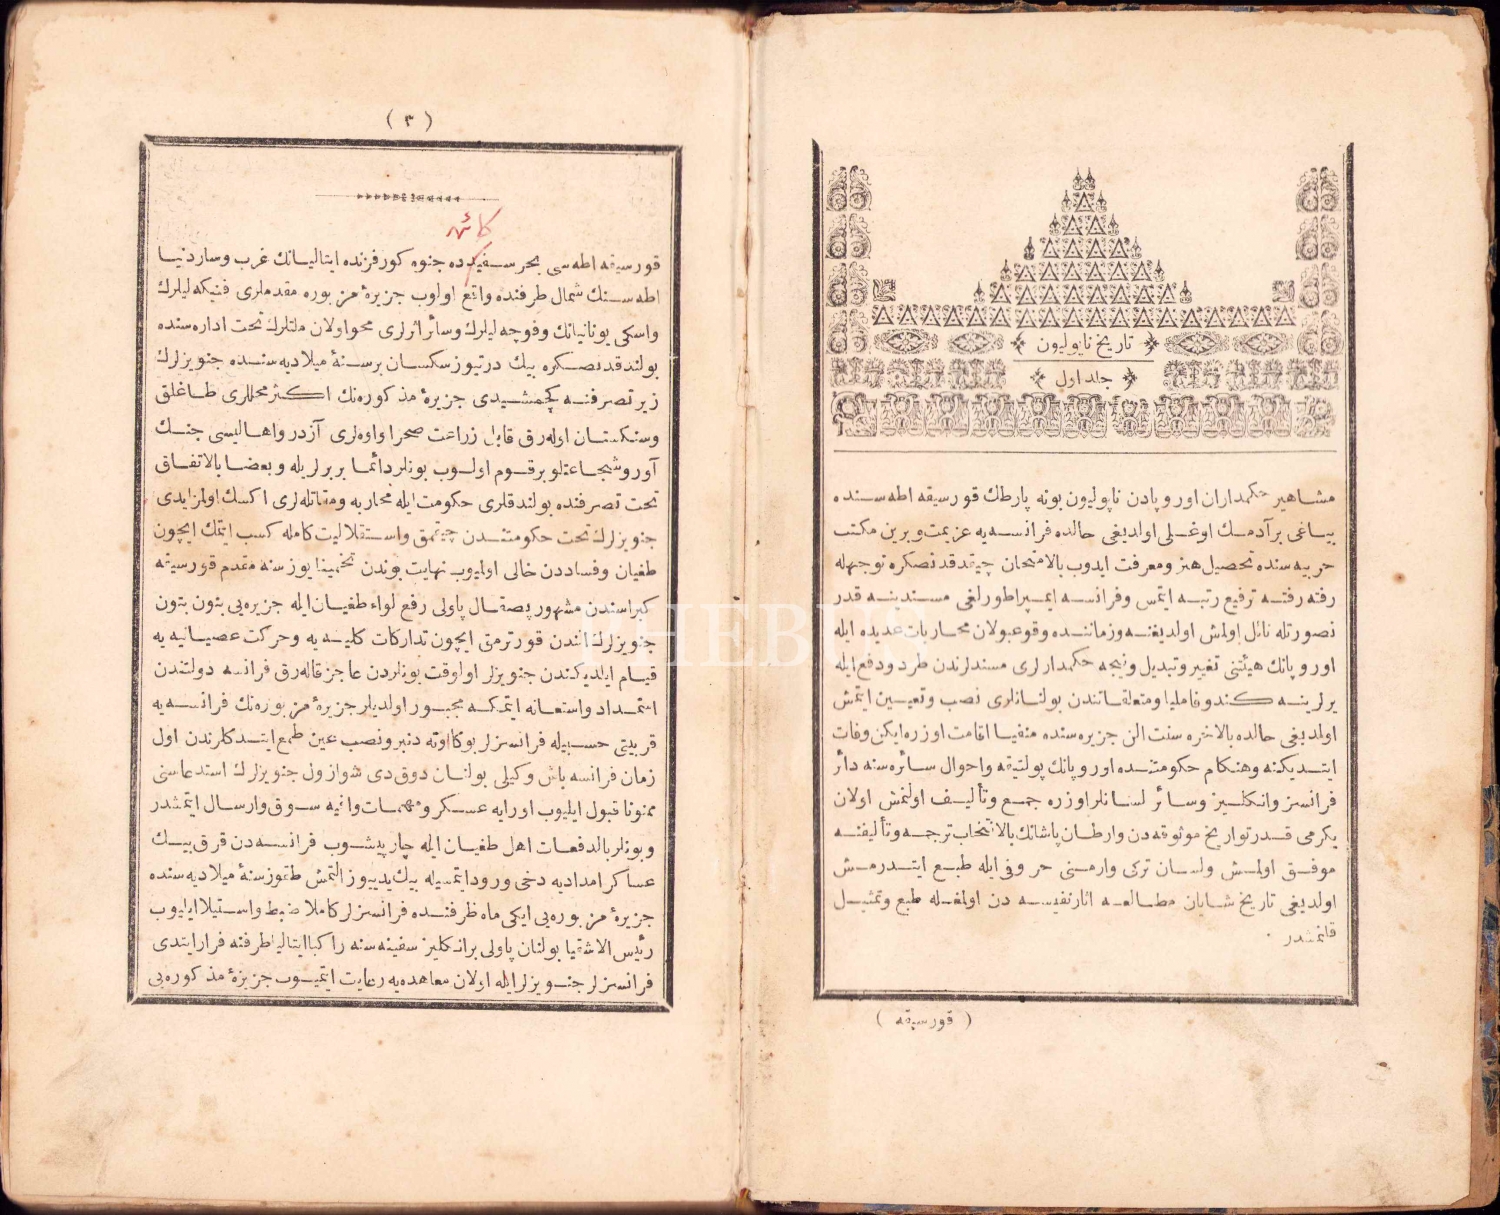 تاریخ ناپولیون
جلد اول
مشاهیر حکمداران اوروپادن ناپولیون بونه پارطك قورسیقه اطه سنده
بیاغی برآدمك اوغلی اولدیغی حالده فرانسه یه عزیمت وبرین مکتب
حربیه سنده تحصیل هنر ومعرفت ایدوب بالامتحان چیقدقدنصکره توجهله
رفته رفته ترفیع رتبه ایتمس وفرانسه ایمپراطورلغی مسندینه قدر
نصورتله نائل اولمش اولدیغنه وزماننده وقوعبولان محاربات عدیده ایله
اوروپانك هیئتنی تغییر وتبدیل ونیجه حکمدارلری مسندلرندن طرد ودفع ایله
یرلرینه کندوفاملیا ومتعلقاتندن بولنانلری نصب وتعیین ایتمش
اولدیغی حالده بالاخره سنت الن جزیره سنده منفیا اقامت اوزره ایکن وفات
ایتدیکنه وهنکام حکومتنده اوروپانك پولتیقه واحوال سائره سنه دائر
فرانسز وانکلیز وسائر لسانلر اوزره جمع وتألیف اولنمش اولان
یکرمی قدر تواریخ موثوقه دن وارطان پاشانك بالانتخاب ترجمه وتألیفنه
موفق اولمش ولسان ترکی وارمنی حروفی ایله طبع ایتدرمش
اولدیغی تاریخ شایان مطالعه اثار نفیسه دن اولمغله طبع وتمثیل
قلنمشدر .
( قورسیقه )
( ٣ )
کائنه
قورسیقه اطه سی بحر سفیدده جنوه کورفزنده ایتالیانك غرب وساردنیا
اطه سنك شمال طرفنده واقع اولوب جزیرۀ مزبوره مقدملری فنیکه لیلرك
واسکی یونانیانك وفوچه لیلرك وسائر اثرلری محو اولان ملتلرك تحت اداره سنده
بولندقدنصکره بیك درتیوز سکسان برسنۀ میلادیه سنده جنویزلرك
زیر تصرفنه کچمشیدی جزیرۀ مذکوره نك اکثر محللری طاغلق
وسنکستان اوله رق قابل زراعت صحرا واوه لری آزدر واهالیسی جنك
آور وشجاعتلو برقوم اولوب بونلر دائما بربرلریله وبعضا بالاتفاق
تحت تصرفنده بولندقلری حکومت ایله محاربه ومقاتله لری اکسك اولمزایدی
جنویزلرك تحت حکومتندن چیقمق واستقلالیت کامله کسب ایتمك ایچون
طغیان وفساددن خالی اولمیوب نهایت بوندن تخمینا یوز سنه مقدم قورسیقه
کبراسندن مشهور پصقال پاولی رفع لواء طغیان ایله جزیره یی بتون بتون
جنویزلرك الندن قورترمق ایچون تدارکات کلیه یه وحرکت عصیانیه یه
قیام ایلدیکندن جنویزلر اولوقت بونلردن عاجز قاله رق فرانسه دولتندن
استمداد واستعانه ایتمکه مجبور اولدیلر جزیرۀ مزبوره نك فرانسه یه
قربیتی حسبیله فرانسزلر بوکا اوته دنبرو نصب عین طمع ایتدکلرندن اول
زمان فرانسه باش وکیلی بولنان دوق دی شوازول جنویزلرك استدعاسنی
ممنونا قبول ایلیوب اورایه عسکر ومهمات وافیه سوق وارسال ایتمشدر
وبونلر بالدفعات اهل طغیان ایله چارپیشوب فرانسه دن قرق بیك
عساکر امدادیه دخی ورود ایتمسیله بیك یدییوز التمش طقوز سنۀ میلادیه سنده
جزیرۀ مزبوره یی ایکی ماه ظرفنده فرانسزلر کاملا ضبط واستیلا ایلیوب
رئیس الاشقیا بولنان پاولی برانکلیز سفینه سنه راکبا ایتالیا طرفنه فرار ایتدی
فرانسزلر جنویزلر ایله اولان معاهده یه رعایت ایتمیوب جزیرۀ مذکوره یی
PHEBUS